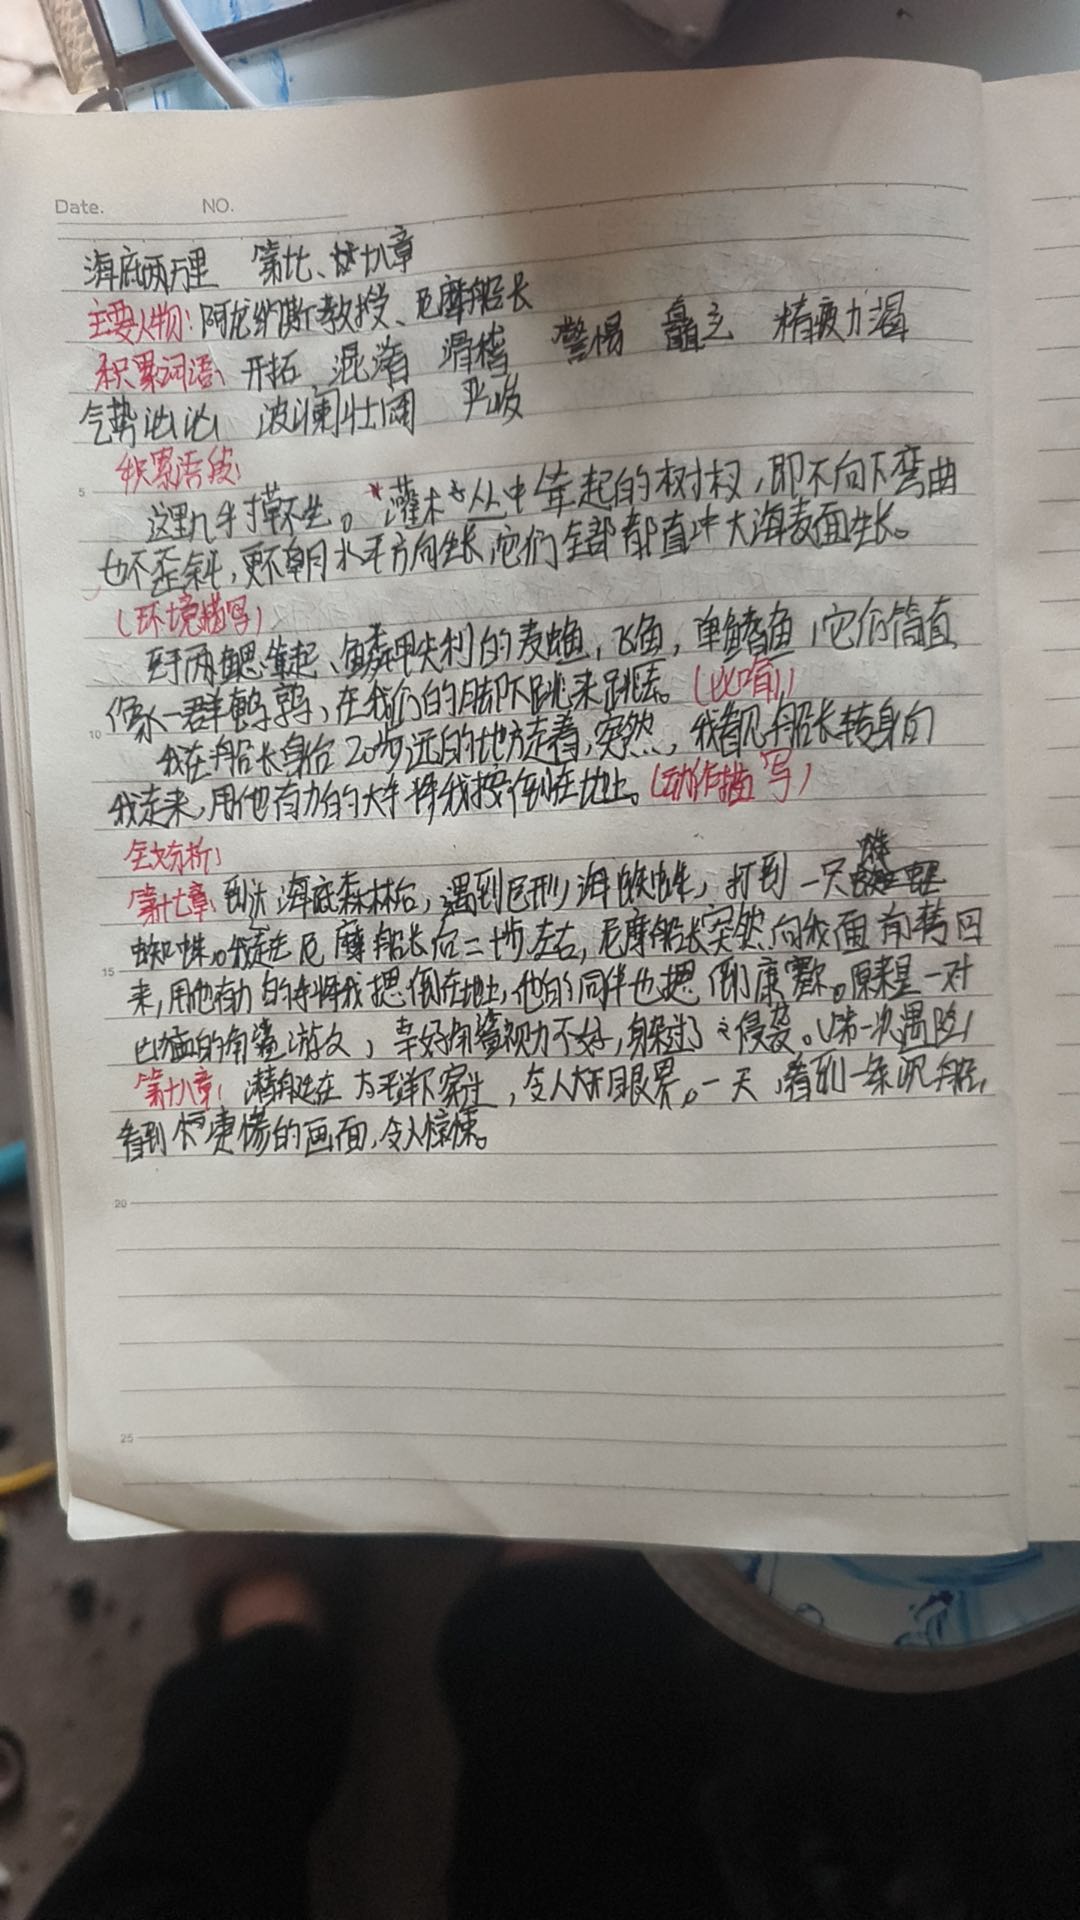 Date. NO.
海底两万里 第十七、十八章
主要人物：阿龙纳斯教授、尼摩船长
积累词语：开拓 混淆 滑稽 警惕 矗立 精疲力竭
气势汹汹 波澜壮阔 严峻
积累语段：
5
这里几乎寸草不生。灌木丛中耸起的树杈，即不向下弯曲
也不歪斜，更不朝水平方向生长，它们全部都直冲大海表面生长。
（环境描写）
至于两鳃耸起、鳞甲尖利的，飞鱼，单鳍鱼，它们简直
像一群鹌鹑，在我们的脚下跳来跳去。（比喻）
10
我在船长身后20步远的地方走着，突然，我看见船长转身向
我走来，用他有力的大手将我按倒在地上。（动作描写）
全文分析：
第十七章：到达海底森林后，遇到巨形海蜘蛛，打到一只
蜘蛛。我走在尼摩船长后二十步左右，尼摩船长突然向我面前转回
15
来，用他有力的手将我摁倒在地上，他的同伴也摁倒康塞尔。原来是一对
凶猛的角鲨游文，幸好角鲨视力不好，躲过了之侵袭。（第一次遇险）
第十八章：潜艇在太平洋下穿过，令人大开眼界。一天，看到一条沉船，
看到悽惨的画面，令人惊悚。
20
25